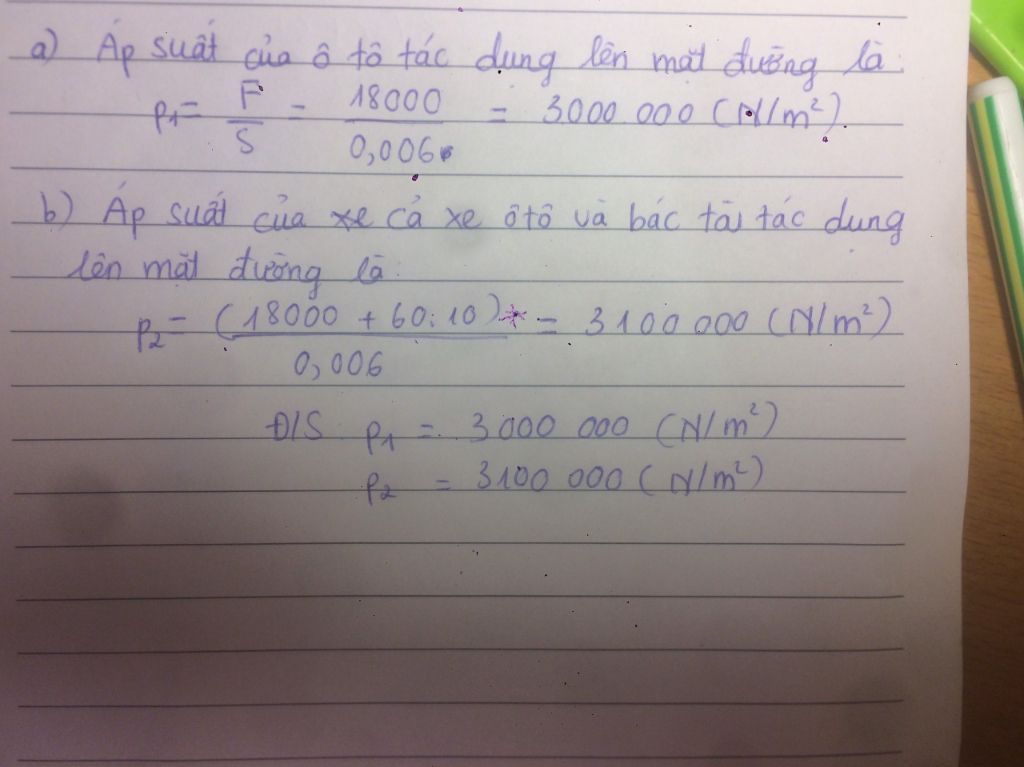 a) Áp suất của ô tô tác dụng lên mặt đường là:
p₁ = F/S = 18000/0,006 = 3000 000 (N/m²).
b) Áp suất của cả xe ôtô và bác tài tác dụng
lên mặt đường là:
p₂ = (18000 + 60.10)/0,006 = 3100 000 (N/m²)
Đ/S p₁ = 3000 000 (N/m²)
p₂ = 3100 000 (N/m²)